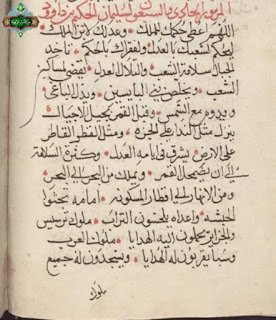 المزمور الحادي والسبعون لسليمان الحكيم
اللهم اعطي حكمك للملك • وعدلك لابن الملك
ليحكم لشعبك بالعدل • ولفقرائك بالحكم • تاخذ
الجبال سلامة للشعب • والتلال العدل • ليقضي لمساكين
الشعب • ويخلص بني البايسين • ويذل الباغي •
ويدوم مع الشمس • وقبل القمر لجيل الاجيال •
ينزل مثل الندا على الجزه • ومثل القطر القاطر
على الارض • يشرق في ايامه العدل • وكثرة السلامة
الى ان يضمحل القمر • ويملك من البحر الى البحر
ومن الانهار الى اقطار المسكونه • امامه تجثوا
الحبشه • واعداه يلحسون التراب • ملوك ترسيس
والجزاير يحملون اليه الهدايا • ملوك العرب
وسبا يقربون له الهدايا • ويسجدون له جميع
ملوك